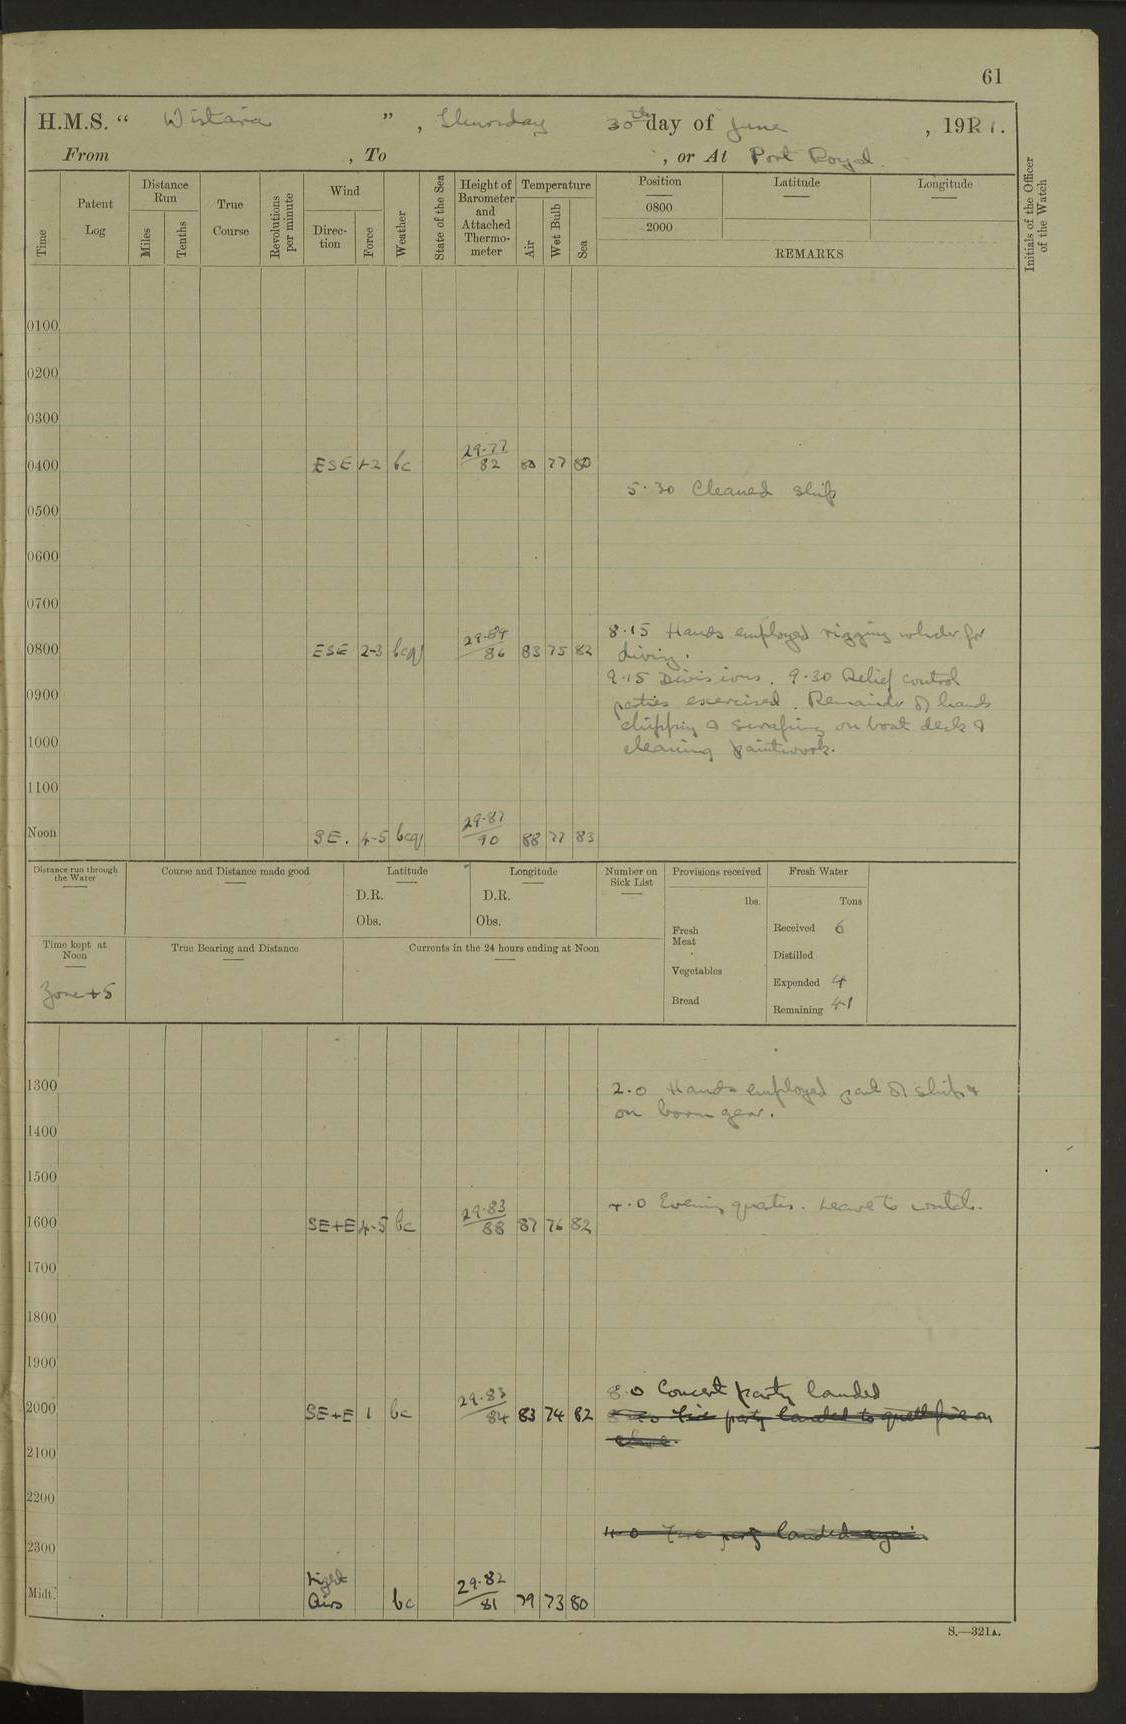 61
H.M.S. “ Wistaria ”, Thursday 30th day of June, 1921.
From , To , or At Port Royal.
Time
Patent Log
Distance Run
Miles
Tenths
True Course
Revolutions per minute
Wind
Direc-tion
Force
Weather
State of the Sea
Height of Barometer and Attached Thermo-meter
Temperature
Air
Wet Bulb
Sea
Position
Latitude
Longitude
0800
2000
REMARKS
Initials of the Officer of the Watch
0100
0200
0300
0400 ESE 1-2 bc 29.77/82 80 77 80
5.30 Cleaned ship
0500
0600
0700
8.15 Hands employed rigging whaler for
0800 ESE 2-3 bcq 29.89/86 83 75 82
diving.
9.15 Divisions. 9.30 Relief control
0900
parties exercised. Remainder of hands
chipping & scraping on boat deck &
1000
cleaning paintwork.
1100
Noon SE. 4-5 bcq 29.87/90 88 77 83
Distance run through the Water
Course and Distance made good
Latitude
D.R.
Obs.
Longitude
D.R.
Obs.
Number on Sick List
Provisions received
lbs.
Fresh Meat
Vegetables
Bread
Fresh Water
Tons
Received 6
Distilled
Expended 4
Remaining 41
Time kept at Noon
Zone +5
True Bearing and Distance
Currents in the 24 hours ending at Noon
1300
2.0 Hands employed part of ship &
on boom gear.
1400
1500
4.0 Evening quarters. Leave to watch.
1600 SE+E 4-5 bc 29.83/88 87 76 82
1700
1800
1900
8.0 Concert party landed
2000 SE+E 1 bc 29.83/84 83 74 82
Fire party landed to quell fire on
shore.
2100
2200
4.0 Fire party landed again
2300
Midt. Light Airs bc 29.82/81 79 73 80
S.—321A.